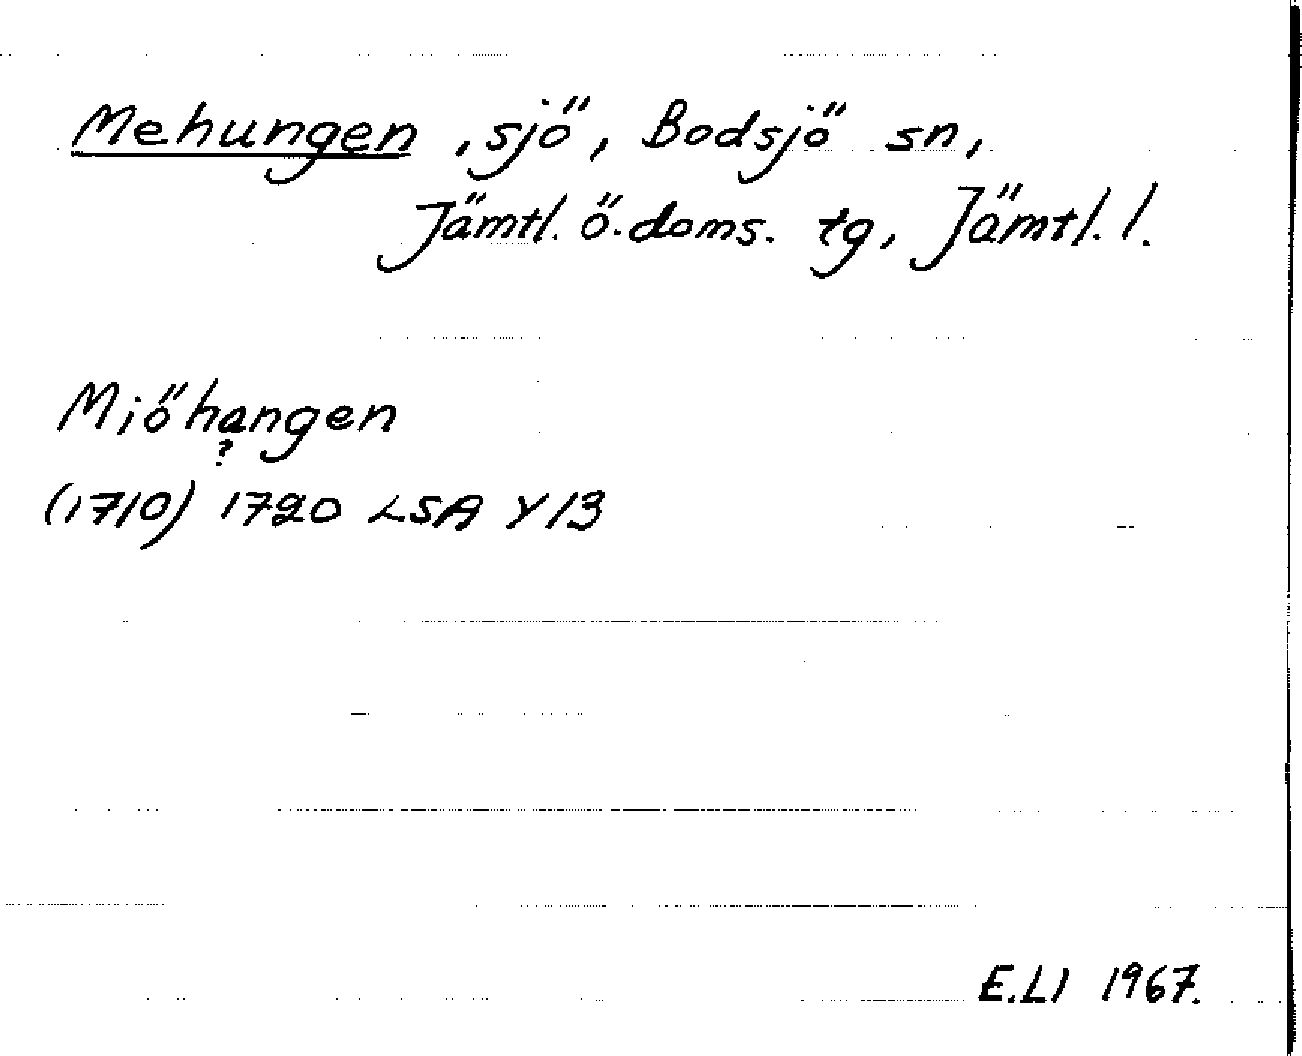 Mehungen, sjö, Bodsjö sn,
Jämtl. ö. doms. tg, Jämtl. l.
Miöhangen
?
(1710) 1720 LSA Y13
E.Ll 1967.